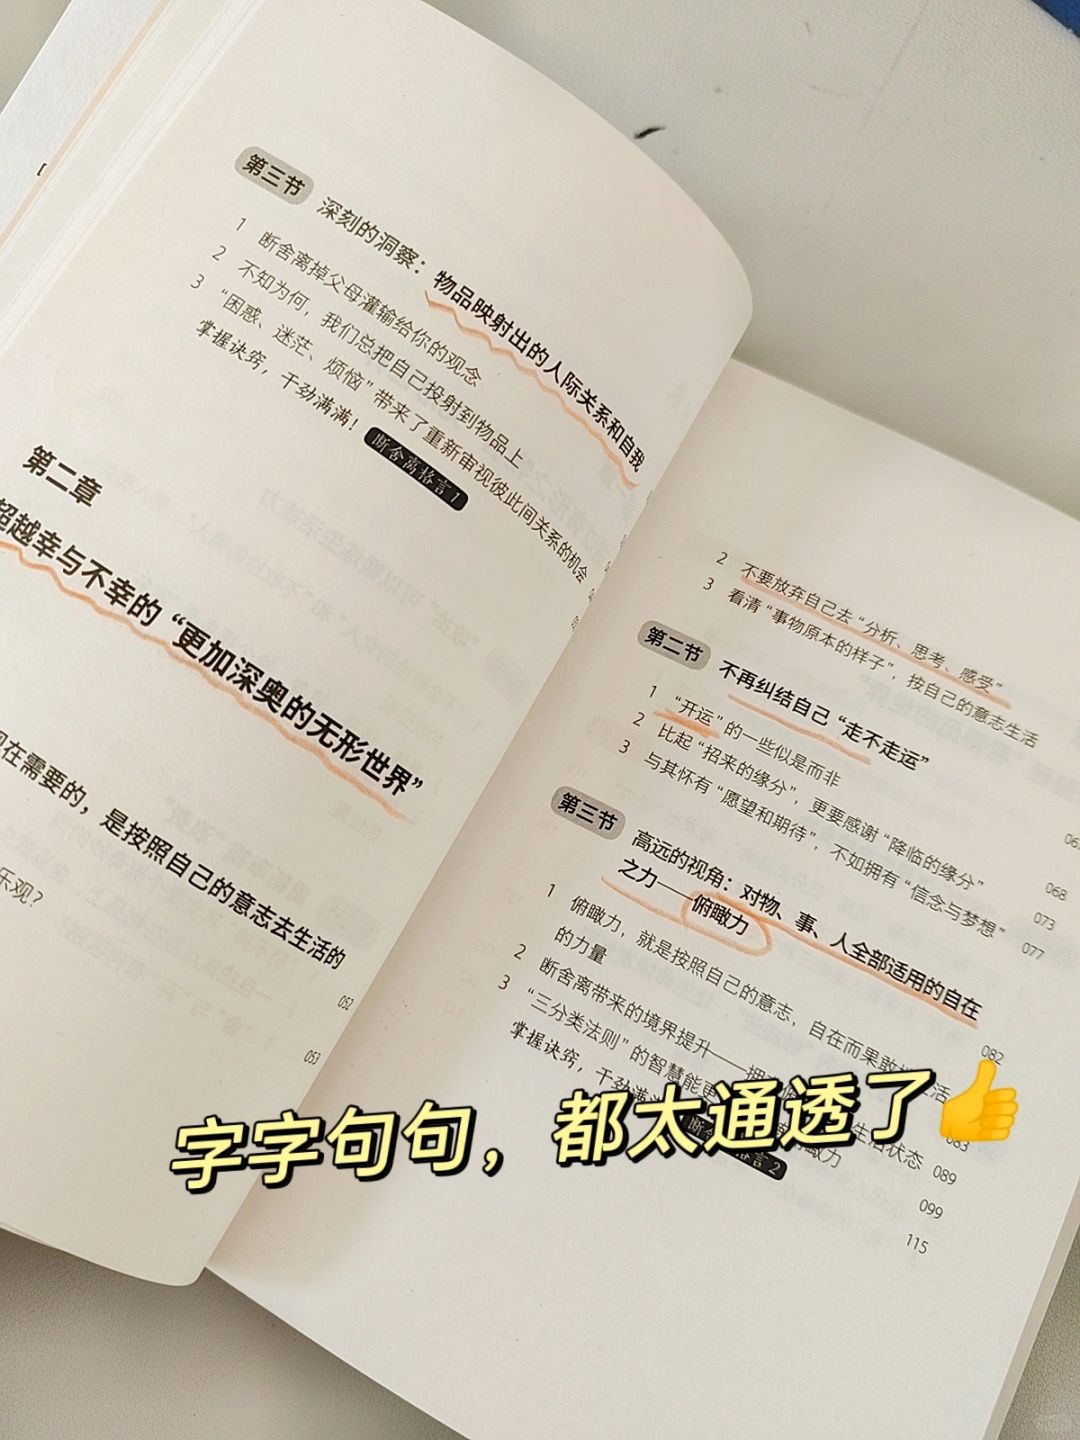 第三节
深刻的洞察：物品映射出的人际关系和自我
1 断舍离掉父母灌输给你的观念
2 不知为何，我们总把自己投射到物品上
3 “困惑、迷茫、烦恼”带来了重新审视彼此间关系的机会
掌握诀窍，干劲满满！断舍离格言1
第二章
超越幸与不幸的“更加深奥的无形世界”
在需要的，是按照自己的意志去生活的
052
乐观？
053
2 不要放弃自己去“分析、思考、感受”
3 看清“事物原本的样子”，按自己的意志生活
第二节
不再纠结自己“走不走运”
1 “开运”的一些似是而非
2 比起“招来的缘分”，更要感谢“降临的缘分”
068
3 与其怀有“愿望和期待”，不如拥有“信念与梦想”
073
077
第三节
高远的视角：对物、事、人全部适用的自在
之力——俯瞰力
082
1 俯瞰力，就是按照自己的意志，自在而果敢地生活
的力量
083
2 断舍离带来的境界提升——拥
生活状态
089
3 “三分类法则”的智慧能更
俯瞰力
099
掌握诀窍，干劲满
断舍离格言2
115
字字句句，都太通透了👍